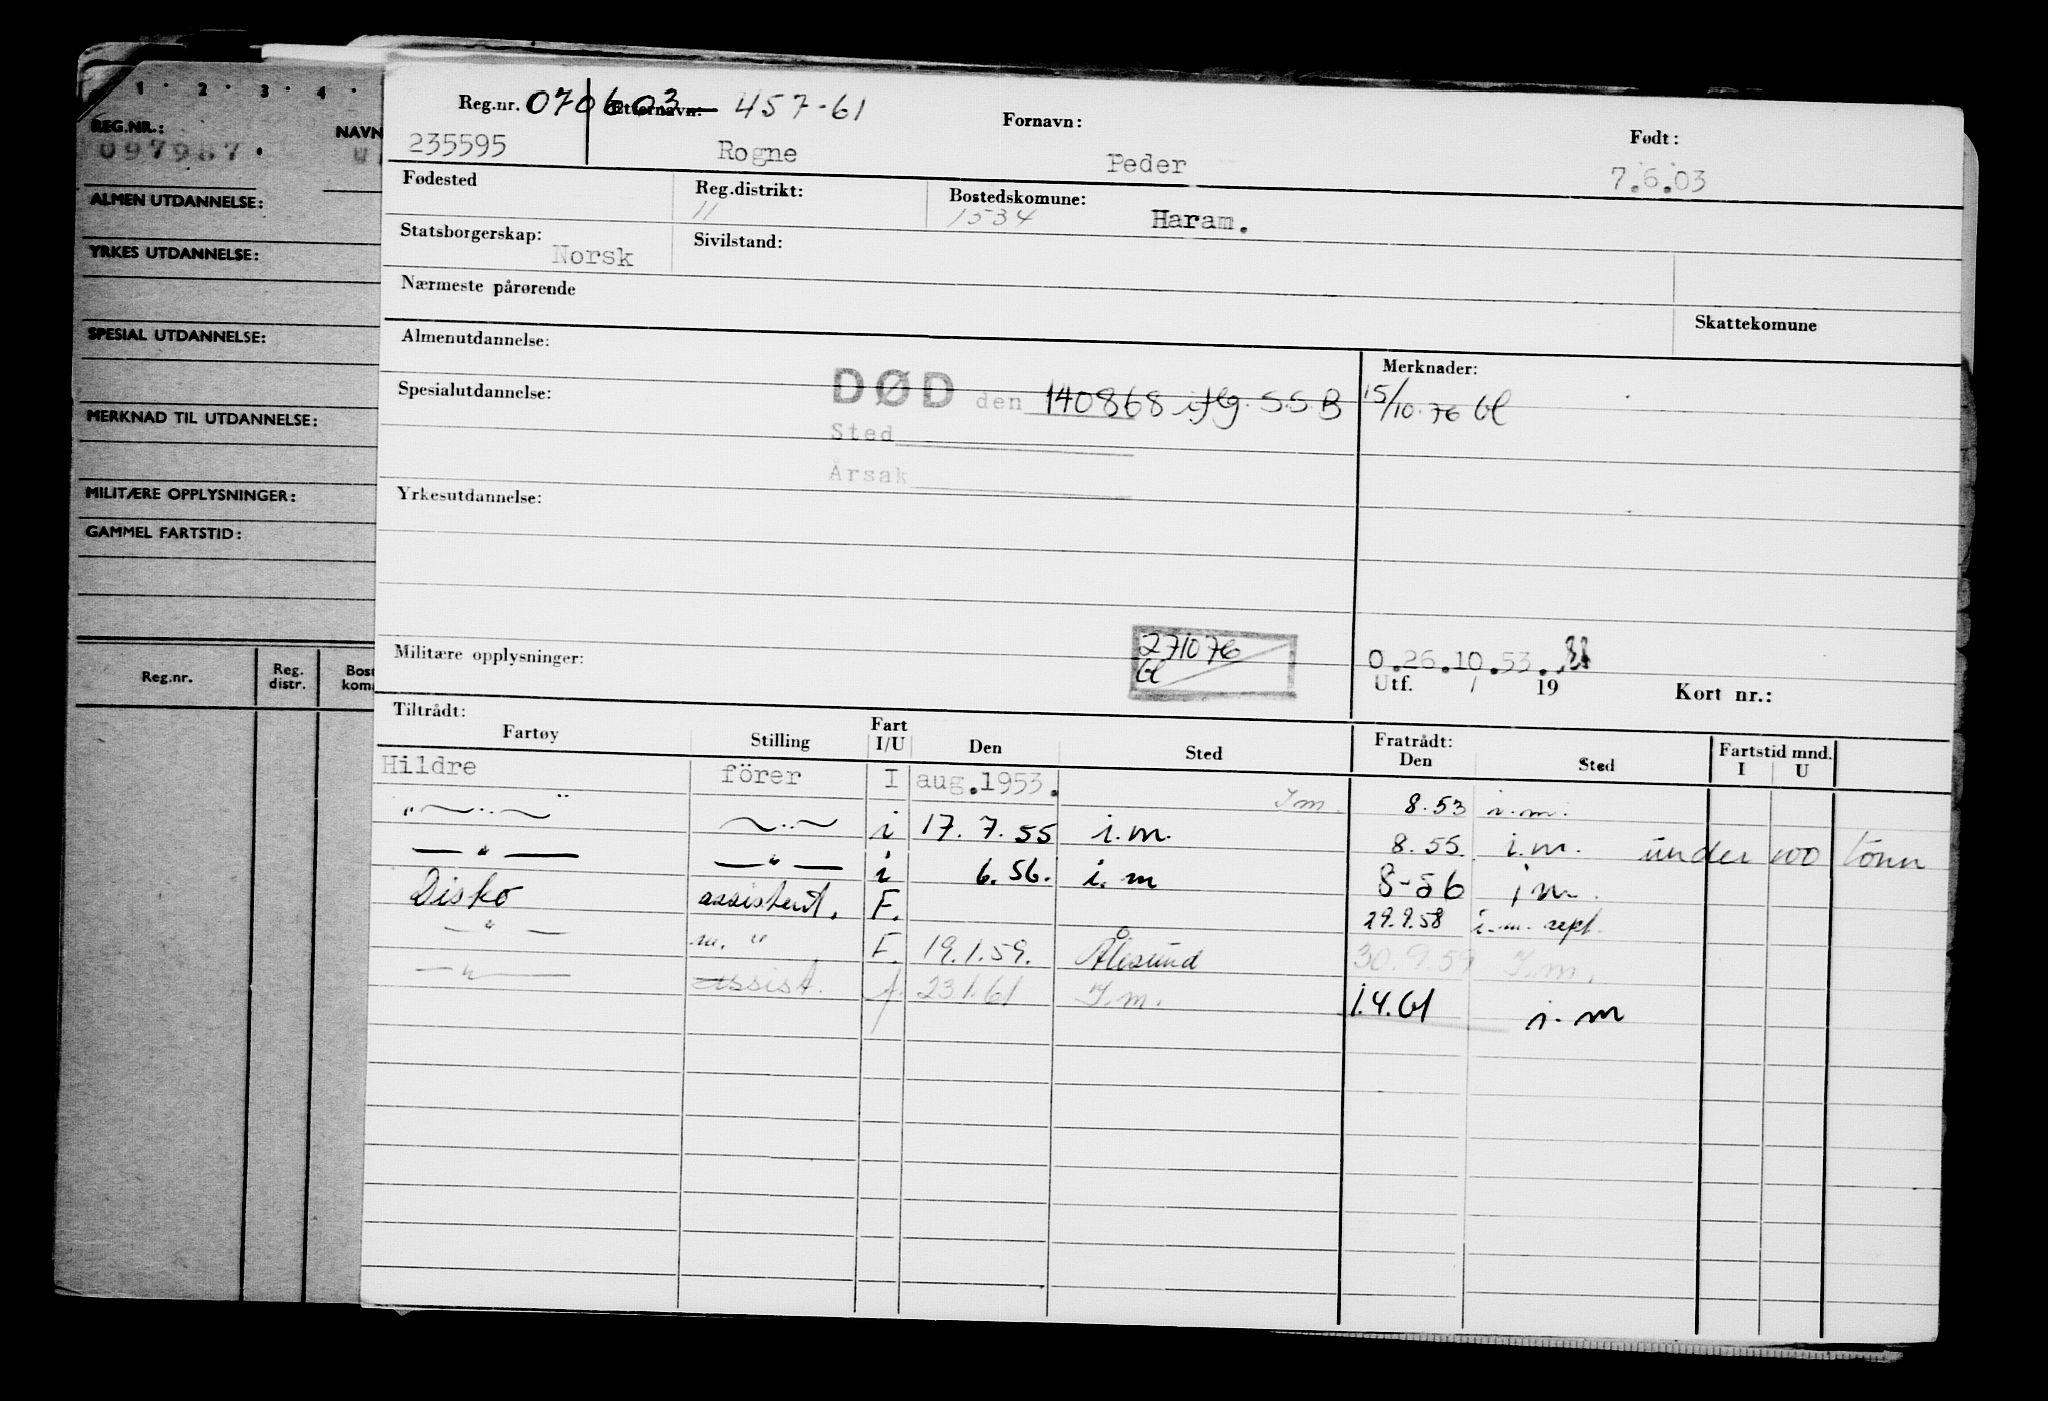 1 · 2 · 3 · 4 ·
REG.NR.:
097987.
NAVN
ALMEN UTDANNELSE:
YRKES UTDANNELSE:
SPESIAL UTDANNELSE:
MERKNAD TIL UTDANNELSE:
MILITÆRE OPPLYSNINGER:
GAMMEL FARTSTID:
Reg.nr. Reg. distr. Bost kom
Reg.nr. 070603 Etternavn: 457-61 Fornavn: Født:
235595 Rogne Peder 7.6.03
Fødested Reg.distrikt: Bostedskomune:
11 1534 Haram.
Statsborgerskap: Norsk Sivilstand:
Nærmeste pårørende
Skattekomune
Almenutdannelse: Merknader:
Spesialutdannelse: DØD den 140868 ifg. S.S.B 15/10.76 Gl
Sted
Årsak
Yrkesutdannelse:
Militære opplysninger: 271076 0.26.10.53.
Gl Utf. / 19 Kort nr.:
Tiltrådt: Fratrådt: Fartstid mnd.
Fartøy Stilling Fart I/U Den Sted Den Sted I U
Hildre förer I aug.1953. I m. 8.53 i.m.
" " i 17.7.55 i.m. 8.55 i.m. under 100 tonn
" " i 6.56. i.m 8-56 im.
Disko assistent. F. 29.9.58 i.m. sept.
" m. " F. 19.1.59. Ålesund 30.9.59 I.m.
" assist. f. 23.1.61 I.m. 1.4.61 i.m